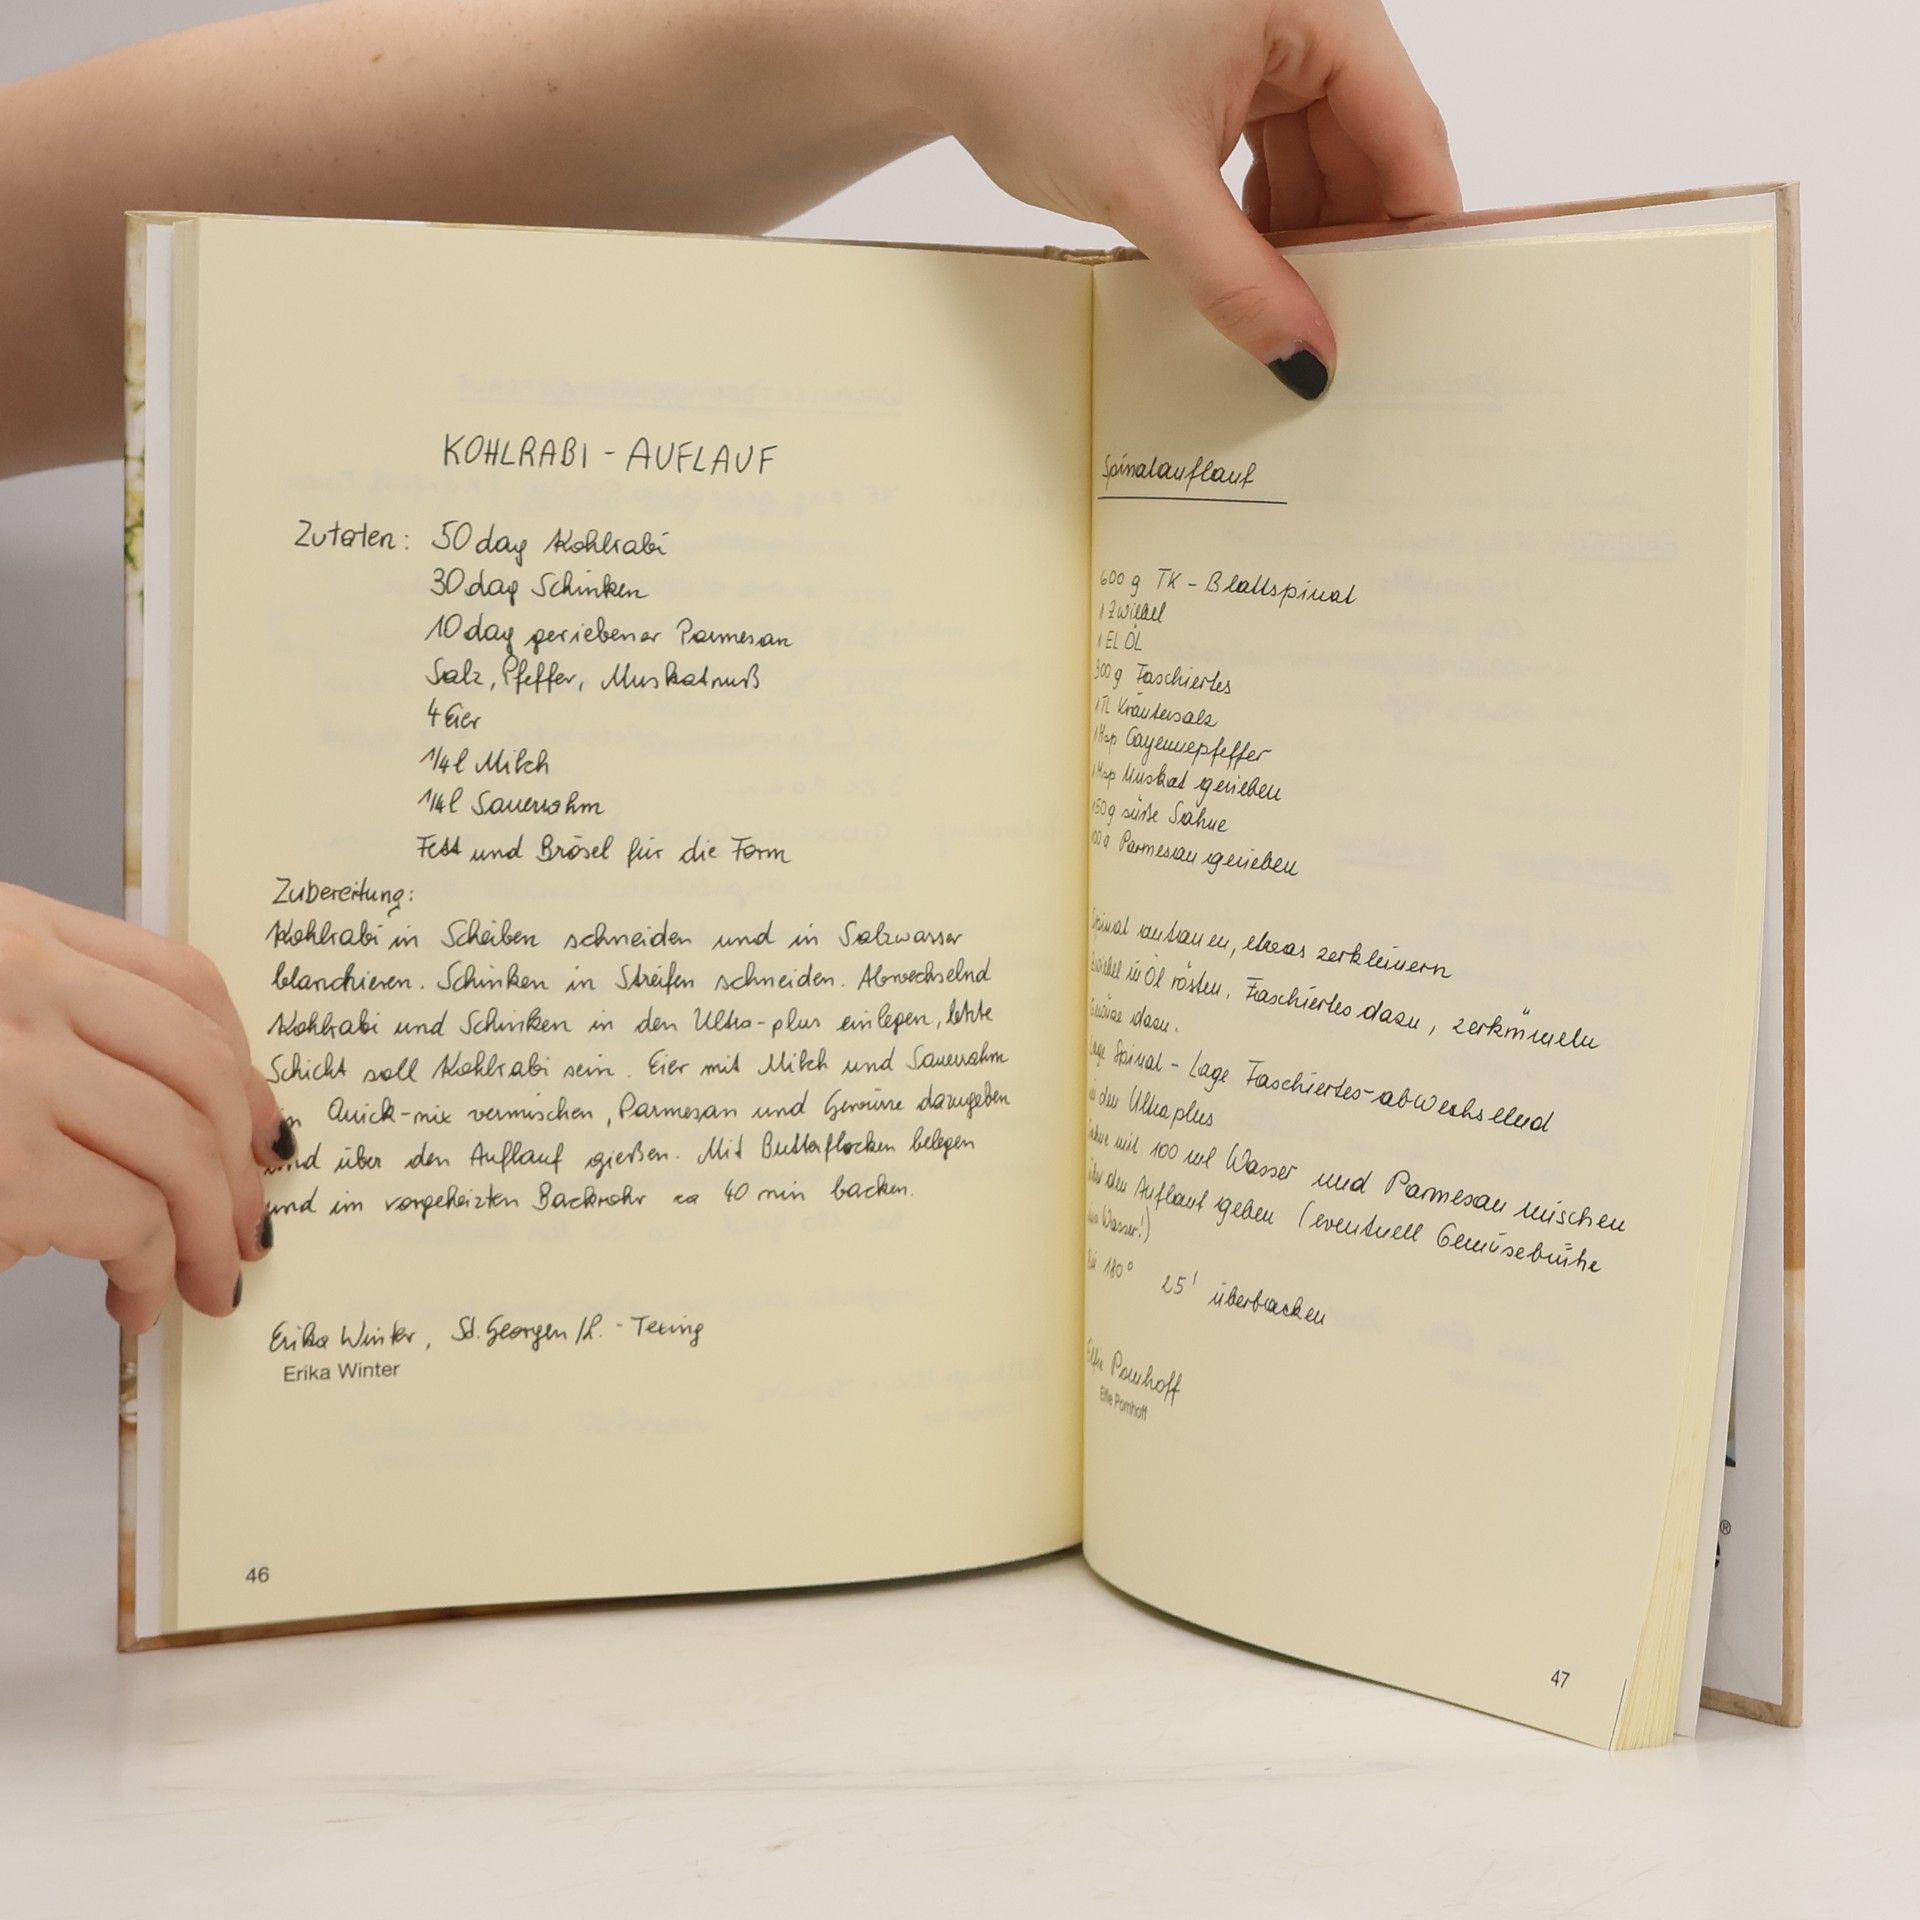 KOHLRABI - AUFLAUF
Zutaten: 50 dag Kohlrabi
30 dag Schinken
10 dag geriebener Parmesan
Salz, Pfeffer, Muskatnuß
4 Eier
1/4 l Milch
1/4 l Sauerrahm
Fett und Brösel für die Form
Zubereitung:
Kohlrabi in Scheiben schneiden und in Salzwasser
blanchieren. Schinken in Streifen schneiden. Abwechselnd
Kohlrabi und Schinken in den Ultra-plus einlegen, letzte
Schicht soll Kohlrabi sein. Eier mit Milch und Sauerrahm
in Quick-mix vermischen, Parmesan und Gewürze dazugeben
und über den Auflauf gießen. Mit Butterflocken belegen
und im vorgeheizten Backrohr ca 40 min backen.
Erika Winter, St. Georgen /L. - Texing
Erika Winter
46
Spinatauflauf
600 g TK - Blattspinat
1 Zwiebel
1 EL ÖL
300 g Faschiertes
1 TL Kräutersalz
1 Msp Cayennepfeffer
1 Msp Muskat gerieben
150 g süße Sahne
100 g Parmesan gerieben
Spinat antauen, etwas zerkleinern
Zwiebel in Öl rösten, Faschiertes dazu, zerkrümeln
Gewürze dazu.
Lage Spinat - Lage Faschiertes - abwechselnd
in den Ultraplus
Sahne mit 100 ml Wasser und Parmesan mischen
über den Auflauf geben (eventuell Gemüsebrühe
Wasser!)
Bei 180° 25' überbacken
Elfie Pomhoff
Elfie Pomhoff
47
®
e